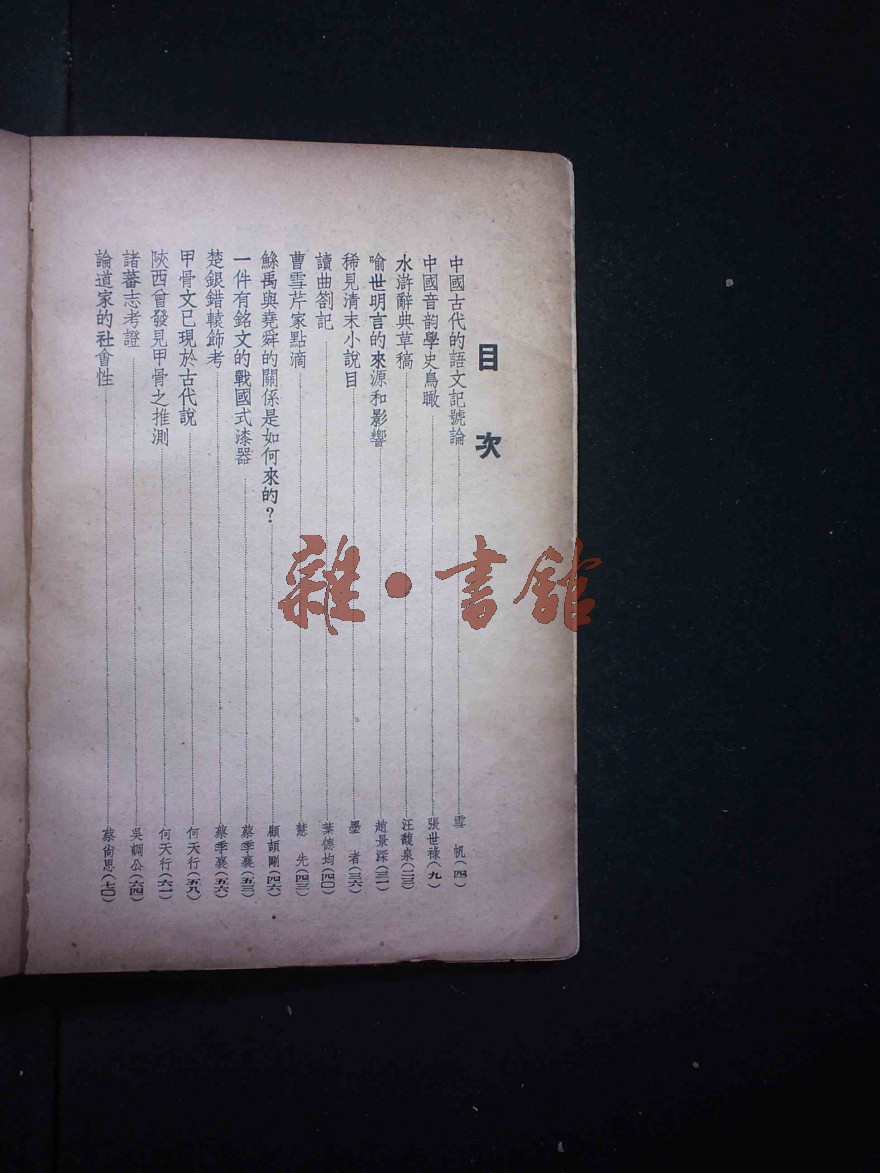 目次
中國古代的語文記號論 雪帆(四)
中國音韵學史鳥瞰 張世祿(九)
水滸辭典草稿 汪馥泉(二三)
喻世明言的來源和影響 趙景深(三一)
稀見清末小說目 墨者(三六)
讀曲劄記 葉德均(四〇)
曹雪芹家點滴 慧先(四三)
鯀禹與堯舜的關係是如何來的？ 顧頡剛(四六)
一件有銘文的戰國式漆器 蔡季襄(五三)
楚銀錯轅飾考 蔡季襄(五六)
甲骨文已現於古代說 何天行(五八)
陝西曾發見甲骨之推測 何天行(六一)
諸蕃志考證 吳調公(六四)
論道家的社會性 蔡尚思(七〇)
雜·書館